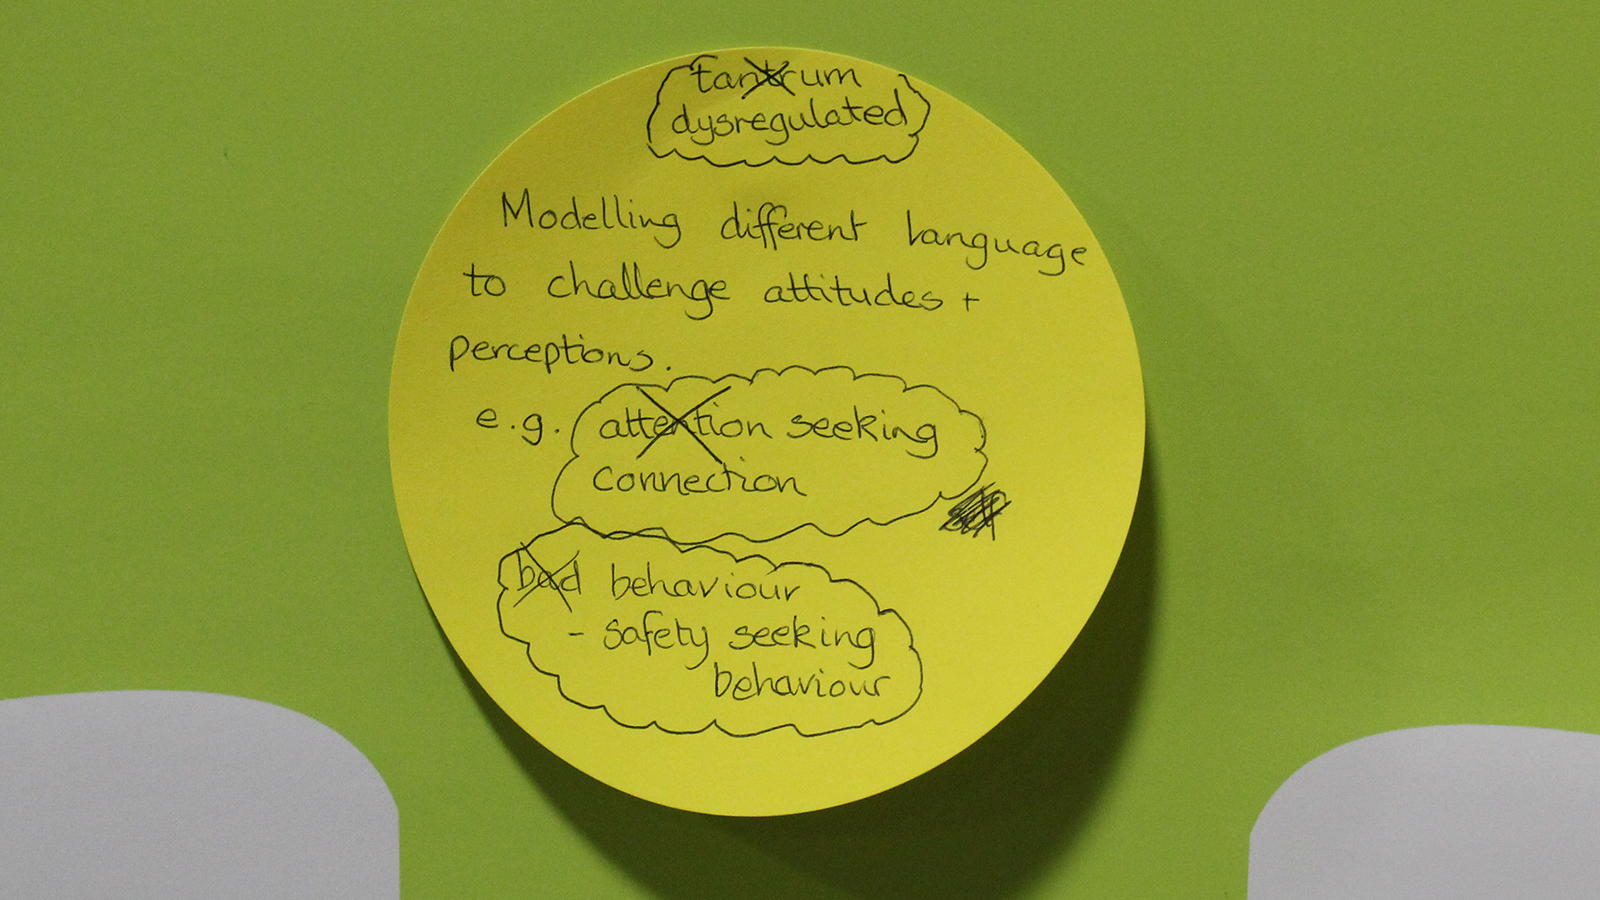 tantrum
dysregulated
Modelling different language
to challenge attitudes +
perceptions.
e.g. attention seeking
connection
bad behaviour
- safety seeking
behaviour